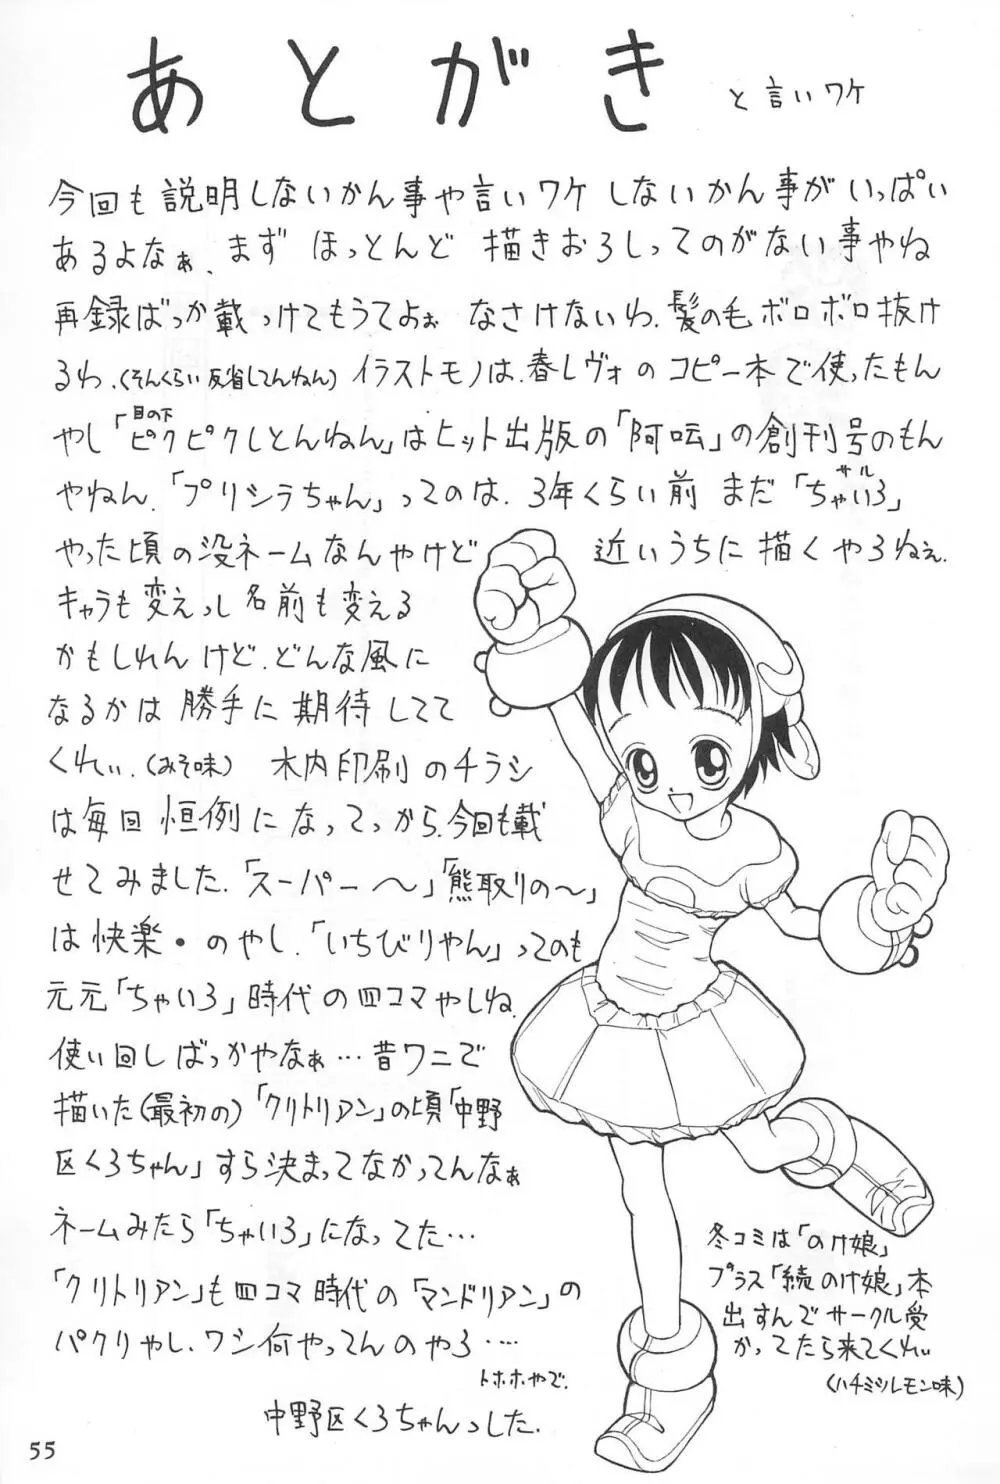 あとがき と言いワケ
今回も説明しないかん事や言いワケしないかん事がいっぱい
あるよなぁ、まず ほっとんど 描きおろしってのがない事やね
再録ばっか載っけてもうてよぉ なさけないわ、髪の毛ボロボロ抜け
るわ、(そんくらい反省してんねん) イラストモノは、春レヴォのコピー本で使ったもん
やし「目の下ピクピクしとんねん」はヒット出版の「阿吽」の創刊号のもん
やねん、「プリシラちゃん」ってのは、3年くらい前 まだ「ちゃいろ」サル
やった頃の没ネームなんやけど 近いうちに描くやろねぇ、
キャラも変えっし名前も変える
かもしれんけど、どんな風に
なるかは勝手に期待してて
くれぃ、(みそ味) 木内印刷のチラシ
は毎回恒例になってっから、今回も載
せてみました、「スーパー〜」「熊取りの〜」
は快楽・のやし、「いちびりやん」ってのも
元元「ちゃいろ」時代の四コマやしね、
使い回しばっかやなぁ…昔ワニで
描いた(最初の)「クリトリアン」の頃「中野
区くろちゃん」すら決まってなかってんなぁ
ネームみたら「ちゃいろ」になってた…
「クリトリアン」も四コマ時代の「マンドリアン」の
パクリやし、ワシ何やってんのやろ‥‥
トホホやで、
中野区くろちゃんっした、
冬コミは「のけ娘」
プラス「続のけ娘」本
出すんでサークル受
かってたら来てくれぃ
(ハチミツレモン味)
55